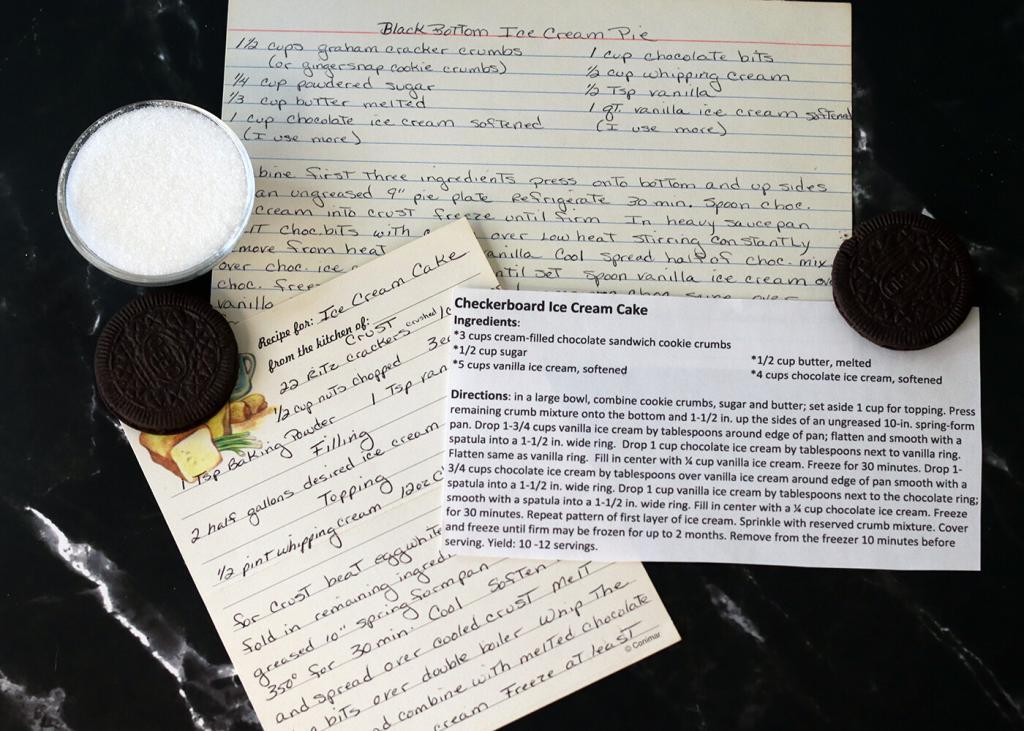 Black Bottom Ice Cream Pie
1½ cups graham cracker crumbs
(or gingersnap cookie crumbs)
¼ cup powdered sugar
⅓ cup butter melted
1 cup chocolate ice cream softened
(I use more)
1 cup chocolate bits
½ cup whipping cream
½ Tsp vanilla
1 qt. vanilla ice cream softened
(I use more)
bine first three ingredients press onto bottom and up sides
an ungreased 9" pie plate Refrigerate 30 min. Spoon choc.
cream into crust freeze until firm In heavy saucepan
choc. bits with over Low heat stirring constantly
move from heat anilla Cool Spread half of choc. mix
over choc. ice ntil set spoon vanilla ice cream
choc. Free
vanilla over
Recipe for: Ice Cream Cake
from the kitchen of:
Crust
22 Ritz crackers crushed
½ cup nuts chopped
1 Tsp Baking Powder 1 Tsp van
Filling
2 half gallons desired ice cream
Topping
½ pint whipping cream 12oz
for crust beat egg white
fold in remaining ingred
greased 10" spring form pan
350° for 30 min. Cool Soften
and spread over cooled crust melt
bits over double boiler Whip The
d combine with melted chocolate
cream Freeze at least
© Conimar
Checkerboard Ice Cream Cake
Ingredients:
*3 cups cream-filled chocolate sandwich cookie crumbs
*1/2 cup sugar
*5 cups vanilla ice cream, softened
*1/2 cup butter, melted
*4 cups chocolate ice cream, softened
Directions: in a large bowl, combine cookie crumbs, sugar and butter; set aside 1 cup for topping. Press
remaining crumb mixture onto the bottom and 1-1/2 in. up the sides of an ungreased 10-in. spring-form
pan. Drop 1-3/4 cups vanilla ice cream by tablespoons around edge of pan; flatten and smooth with a
spatula into a 1-1/2 in. wide ring. Drop 1 cup chocolate ice cream by tablespoons next to vanilla ring.
Flatten same as vanilla ring. Fill in center with ¼ cup vanilla ice cream. Freeze for 30 minutes. Drop 1-
3/4 cups chocolate ice cream by tablespoons over vanilla ice cream around edge of pan smooth with a
spatula into a 1-1/2 in. wide ring. Drop 1 cup vanilla ice cream by tablespoons next to the chocolate ring;
smooth with a spatula into a 1-1/2 in. wide ring. Fill in center with a ¼ cup chocolate ice cream. Freeze
for 30 minutes. Repeat pattern of first layer of ice cream. Sprinkle with reserved crumb mixture. Cover
and freeze until firm may be frozen for up to 2 months. Remove from the freezer 10 minutes before
serving. Yield: 10 -12 servings.